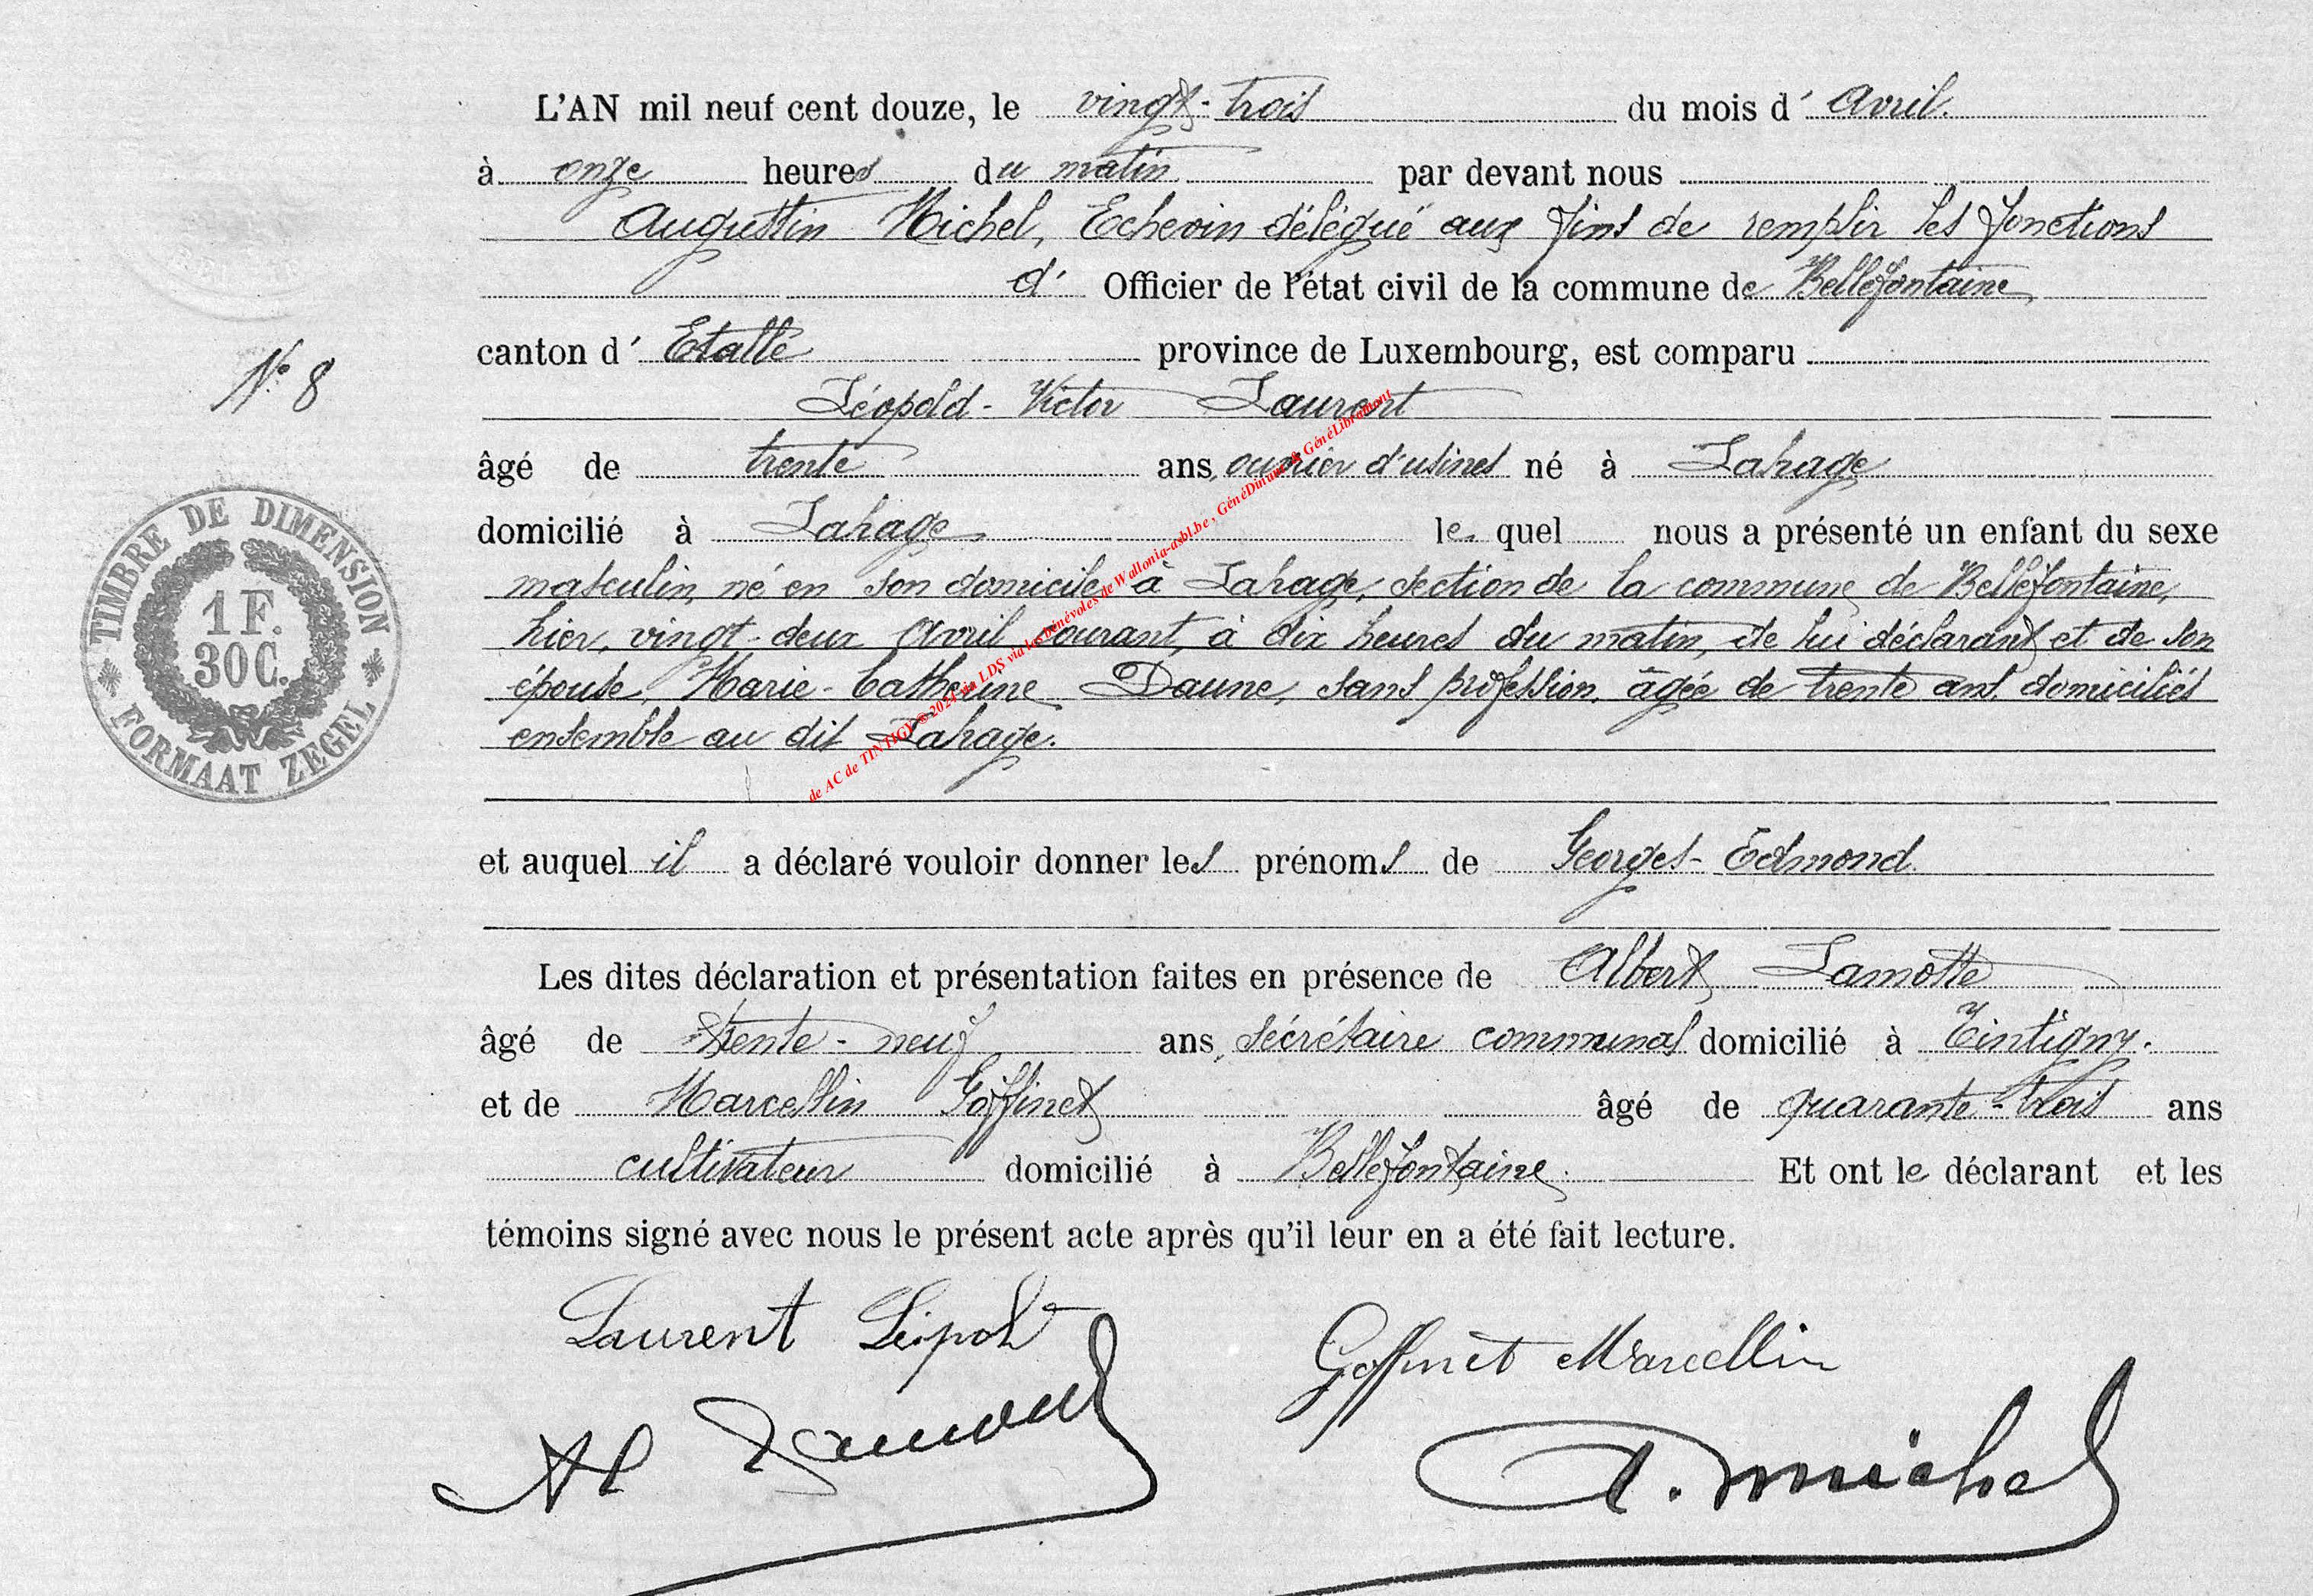 L'AN mil neuf cent douze, le vingt-trois du mois d' Avril.
à onze heures du matin par devant nous
Augustin Michel, Echevin délégué aux fins de remplir les fonctions
d' Officier de l'état civil de la commune de Bellefontaine,
canton d' Etalle province de Luxembourg, est comparu
N° 8
Léopold-Victor Laurent
âgé de trente ans, ouvrier d'usines né à Lahage
domicilié à Lahage lequel nous a présenté un enfant du sexe
masculin, né en son domicile à Lahage, section de la commune de Bellefontaine,
hier, vingt-deux Avril courant, à dix heures du matin, de lui déclarant et de son
épouse, Marie-Catherine Daune, sans profession, âgée de trente ans, domiciliés
ensemble au dit Lahage.
TIMBRE DE DIMENSION
1 F.
30 C.
FORMAAT ZEGEL
de AC de TINTIGY © 2024 via LDS via les bénévoles de Wallonia-asbl.be, GénéDinant & GénéLibramont
et auquel il a déclaré vouloir donner les prénoms de Georges-Edmond.
Les dites déclaration et présentation faites en présence de Albert Lamotte
âgé de trente-neuf ans, sécrétaire communal domicilié à Tintigny.
et de Marcellin Goffinet âgé de quarante-trois ans
cultivateur domicilié à Bellefontaine. Et ont le déclarant et les
témoins signé avec nous le présent acte après qu'il leur en a été fait lecture.
Laurent Léopold
Goffinet Marcellin
Al Lamotte
A. Michel